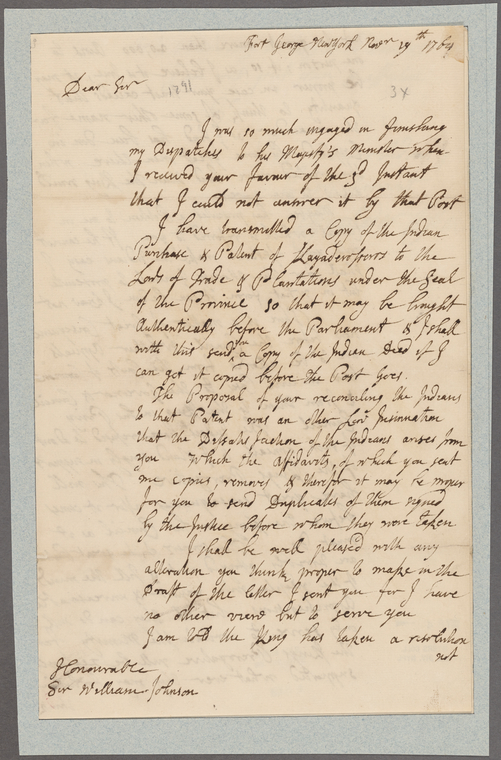 Fort George New York Novr 19th 1764
Dear Sir
1291
3x
I was so much engaged in finishing
my Despatches to his Majesty's Minister when
I received your favour of the 3d Instant
that I could not answer it by that Post
I have transmitted a Copy of the Indian
Purchase & Patent of Kayaderosseros to the
Lords of Trade & Plantations under the Seal
of the Province so that it may be brought
Authentically before the Parliament & I shall
with this send you a Copy of the Indian Deed if I
can get it copied before the Post goes.
The Proposal of your reconciling the Indians
to that Patent was an other Insinuation
that the Dissatisfaction of the Indians arises from
you which the Affidavits, of which you sent
me copies, removes & therefor it may be proper
for you to send Duplicates of them signed
by the Justice before whom they were taken
I shall be well pleased with any
alteration you think proper to make in the
Draft of the letter I sent you for I have
no other view but to serve you
I am told the King has taken a resolution
not
Honourable
Sir William Johnson